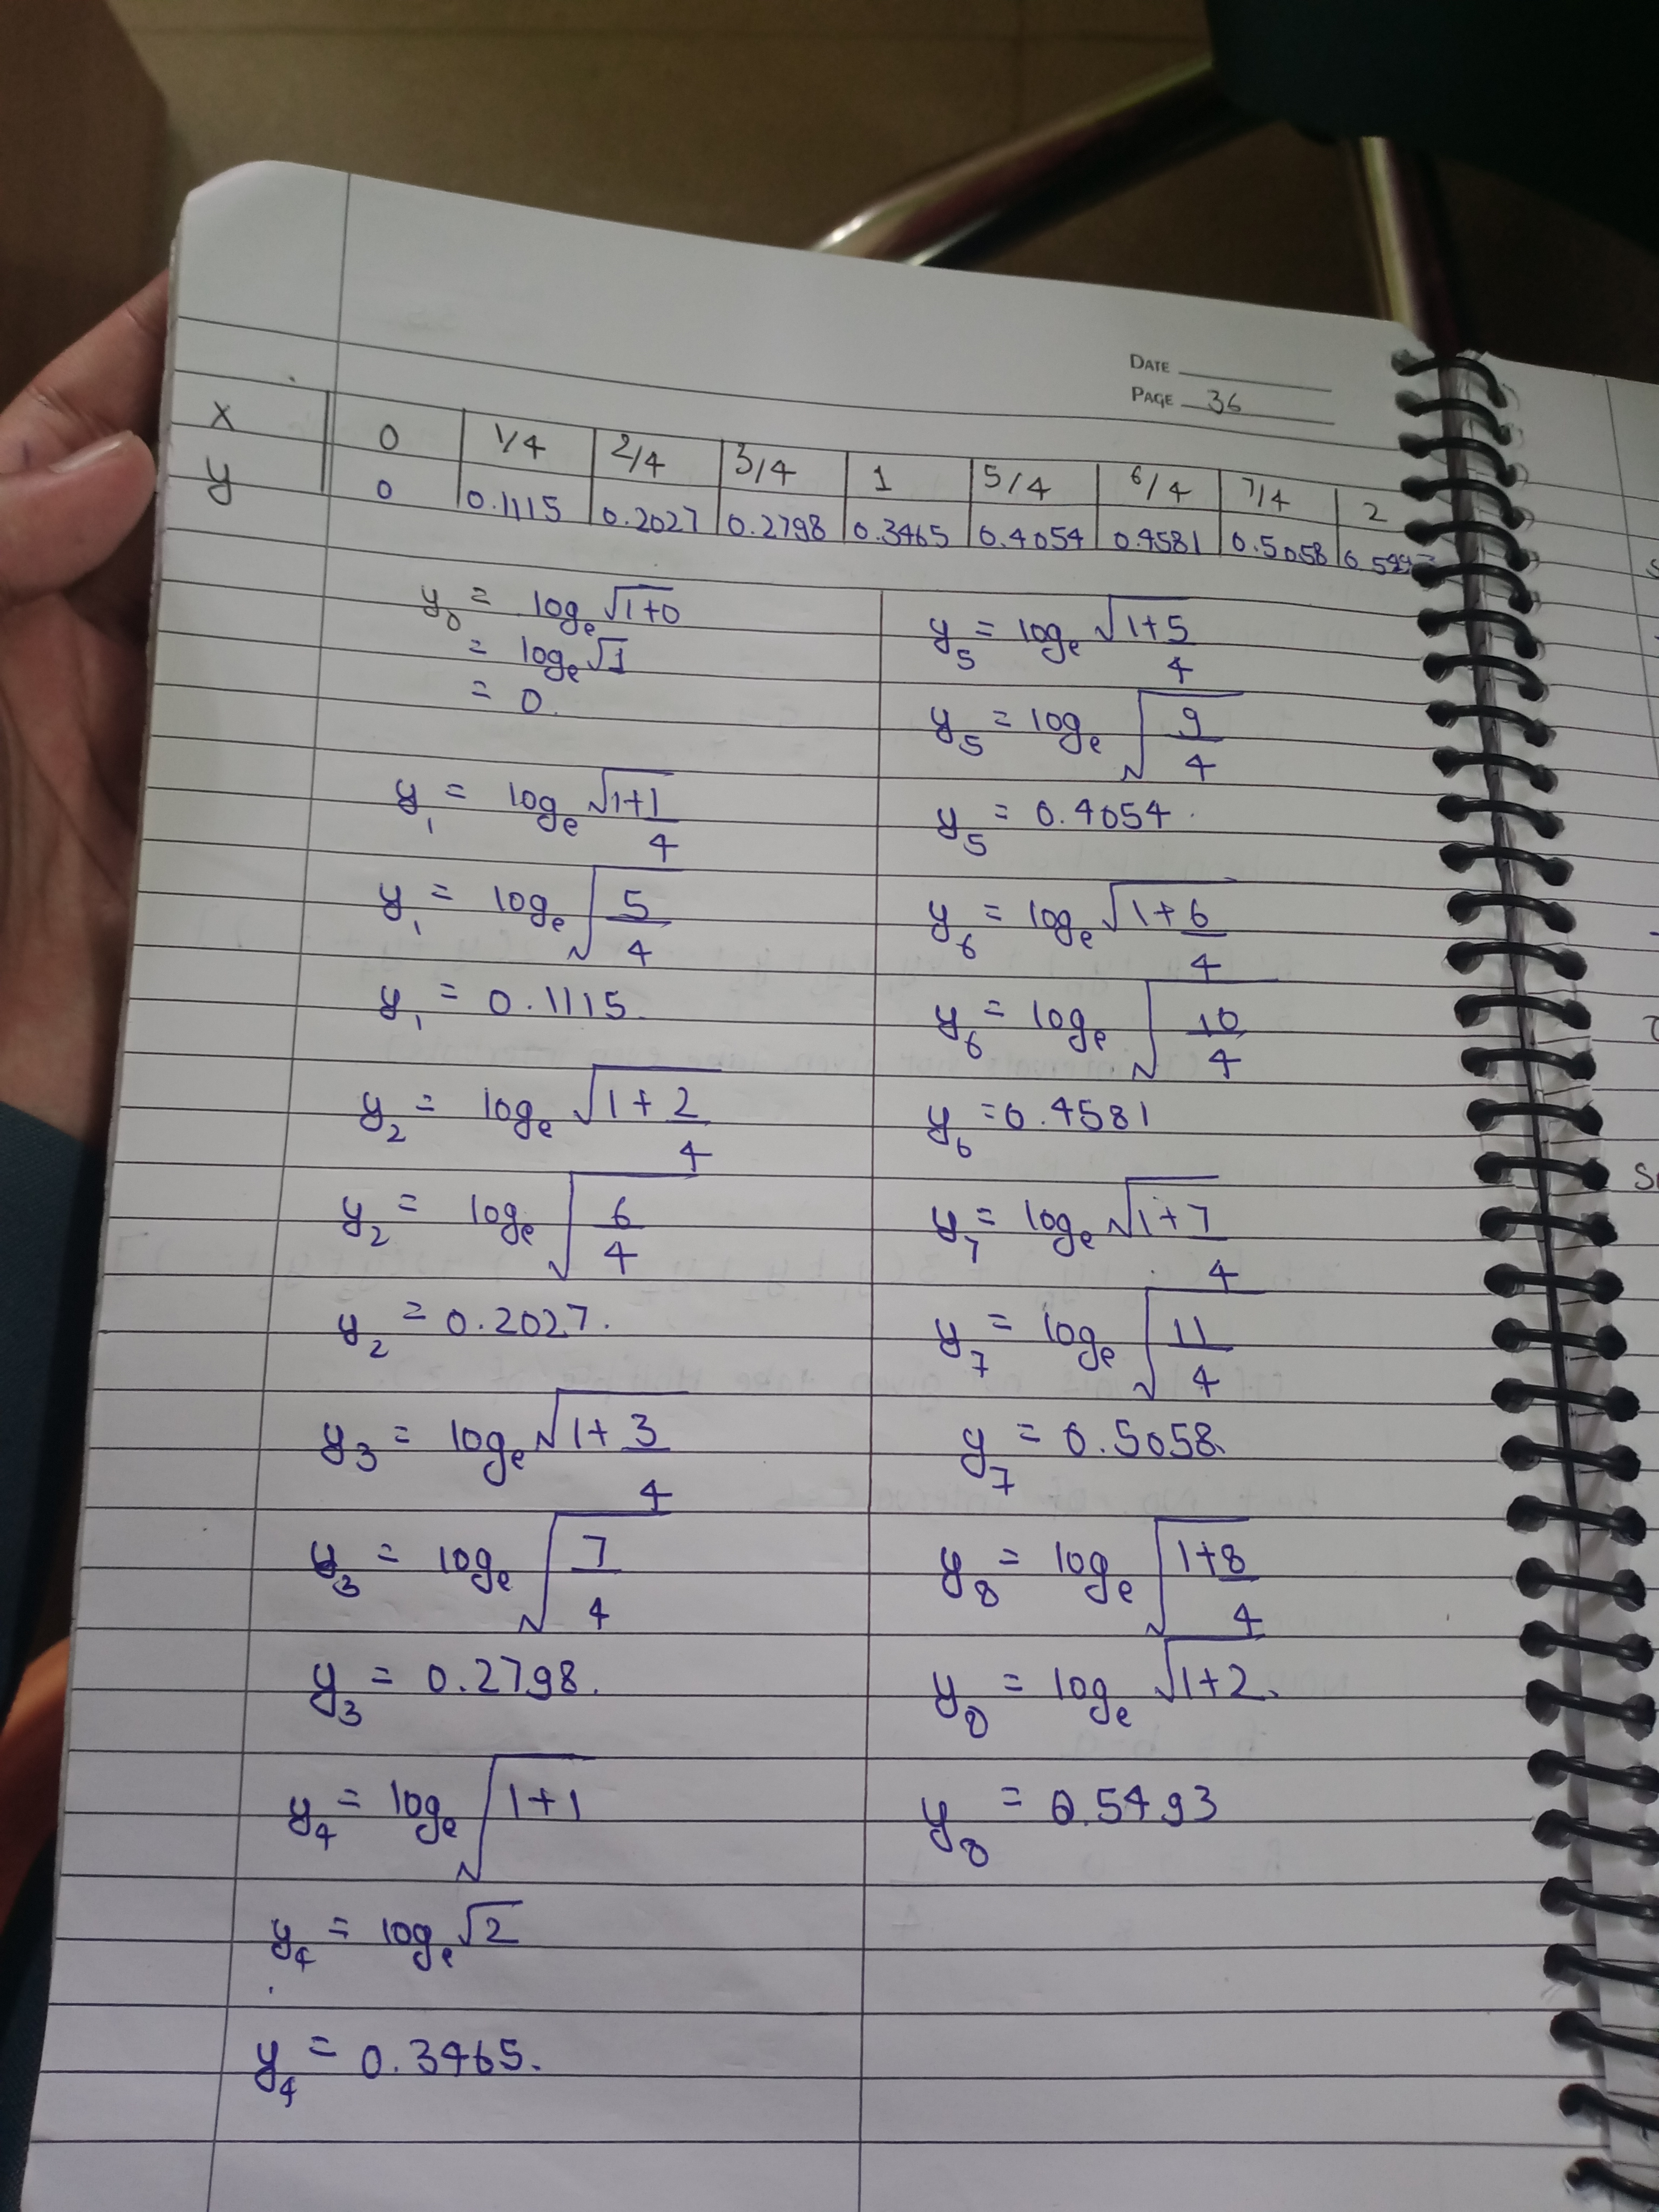 DATE
PAGE 36
x 0 1/4 2/4 3/4 1 5/4 6/4 7/4 2
y 0 0.1115 0.2027 0.2798 0.3465 0.4054 0.4581 0.5058
y₀ = logₑ √1+0
= logₑ √1
= 0.
y₁ = logₑ √1+1/4
y₁ = logₑ √5/4
y₁ = 0.1115.
y₂ = logₑ √1+2/4
y₂ = logₑ √6/4
y₂ = 0.2027.
y₃ = logₑ √1+3/4
y₃ = logₑ √7/4
y₃ = 0.2798.
y₄ = logₑ √1+1
y₄ = logₑ √2
y₄ = 0.3465.
y₅ = logₑ √1+5/4
y₅ = logₑ √9/4
y₅ = 0.4054.
y₆ = logₑ √1+6/4
y₆ = logₑ √10/4
y₆ = 0.4581
y₇ = logₑ √1+7/4
y₇ = logₑ √11/4
y₇ = 0.5058.
y₈ = logₑ √1+8/4
y₈ = logₑ √1+2.
y₈ = 0.5493